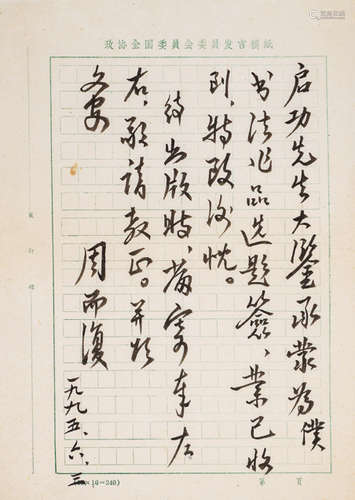 政协全国委员会委员发言稿纸
启功先生大鉴承蒙为仆
书法作品选题签、业已收
到，特致谢忱。
待出版时，当寄奉左
右，敬请教正。并颂
文安
周而复
一九九五、六、三
×16=240)
第 页